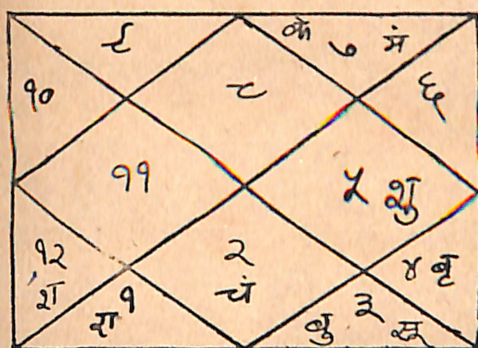 ९
के ७ मं
१०
८
६
११
५ शु
१२
श
रा १
२
चं
बु ३ सू
४ बृ